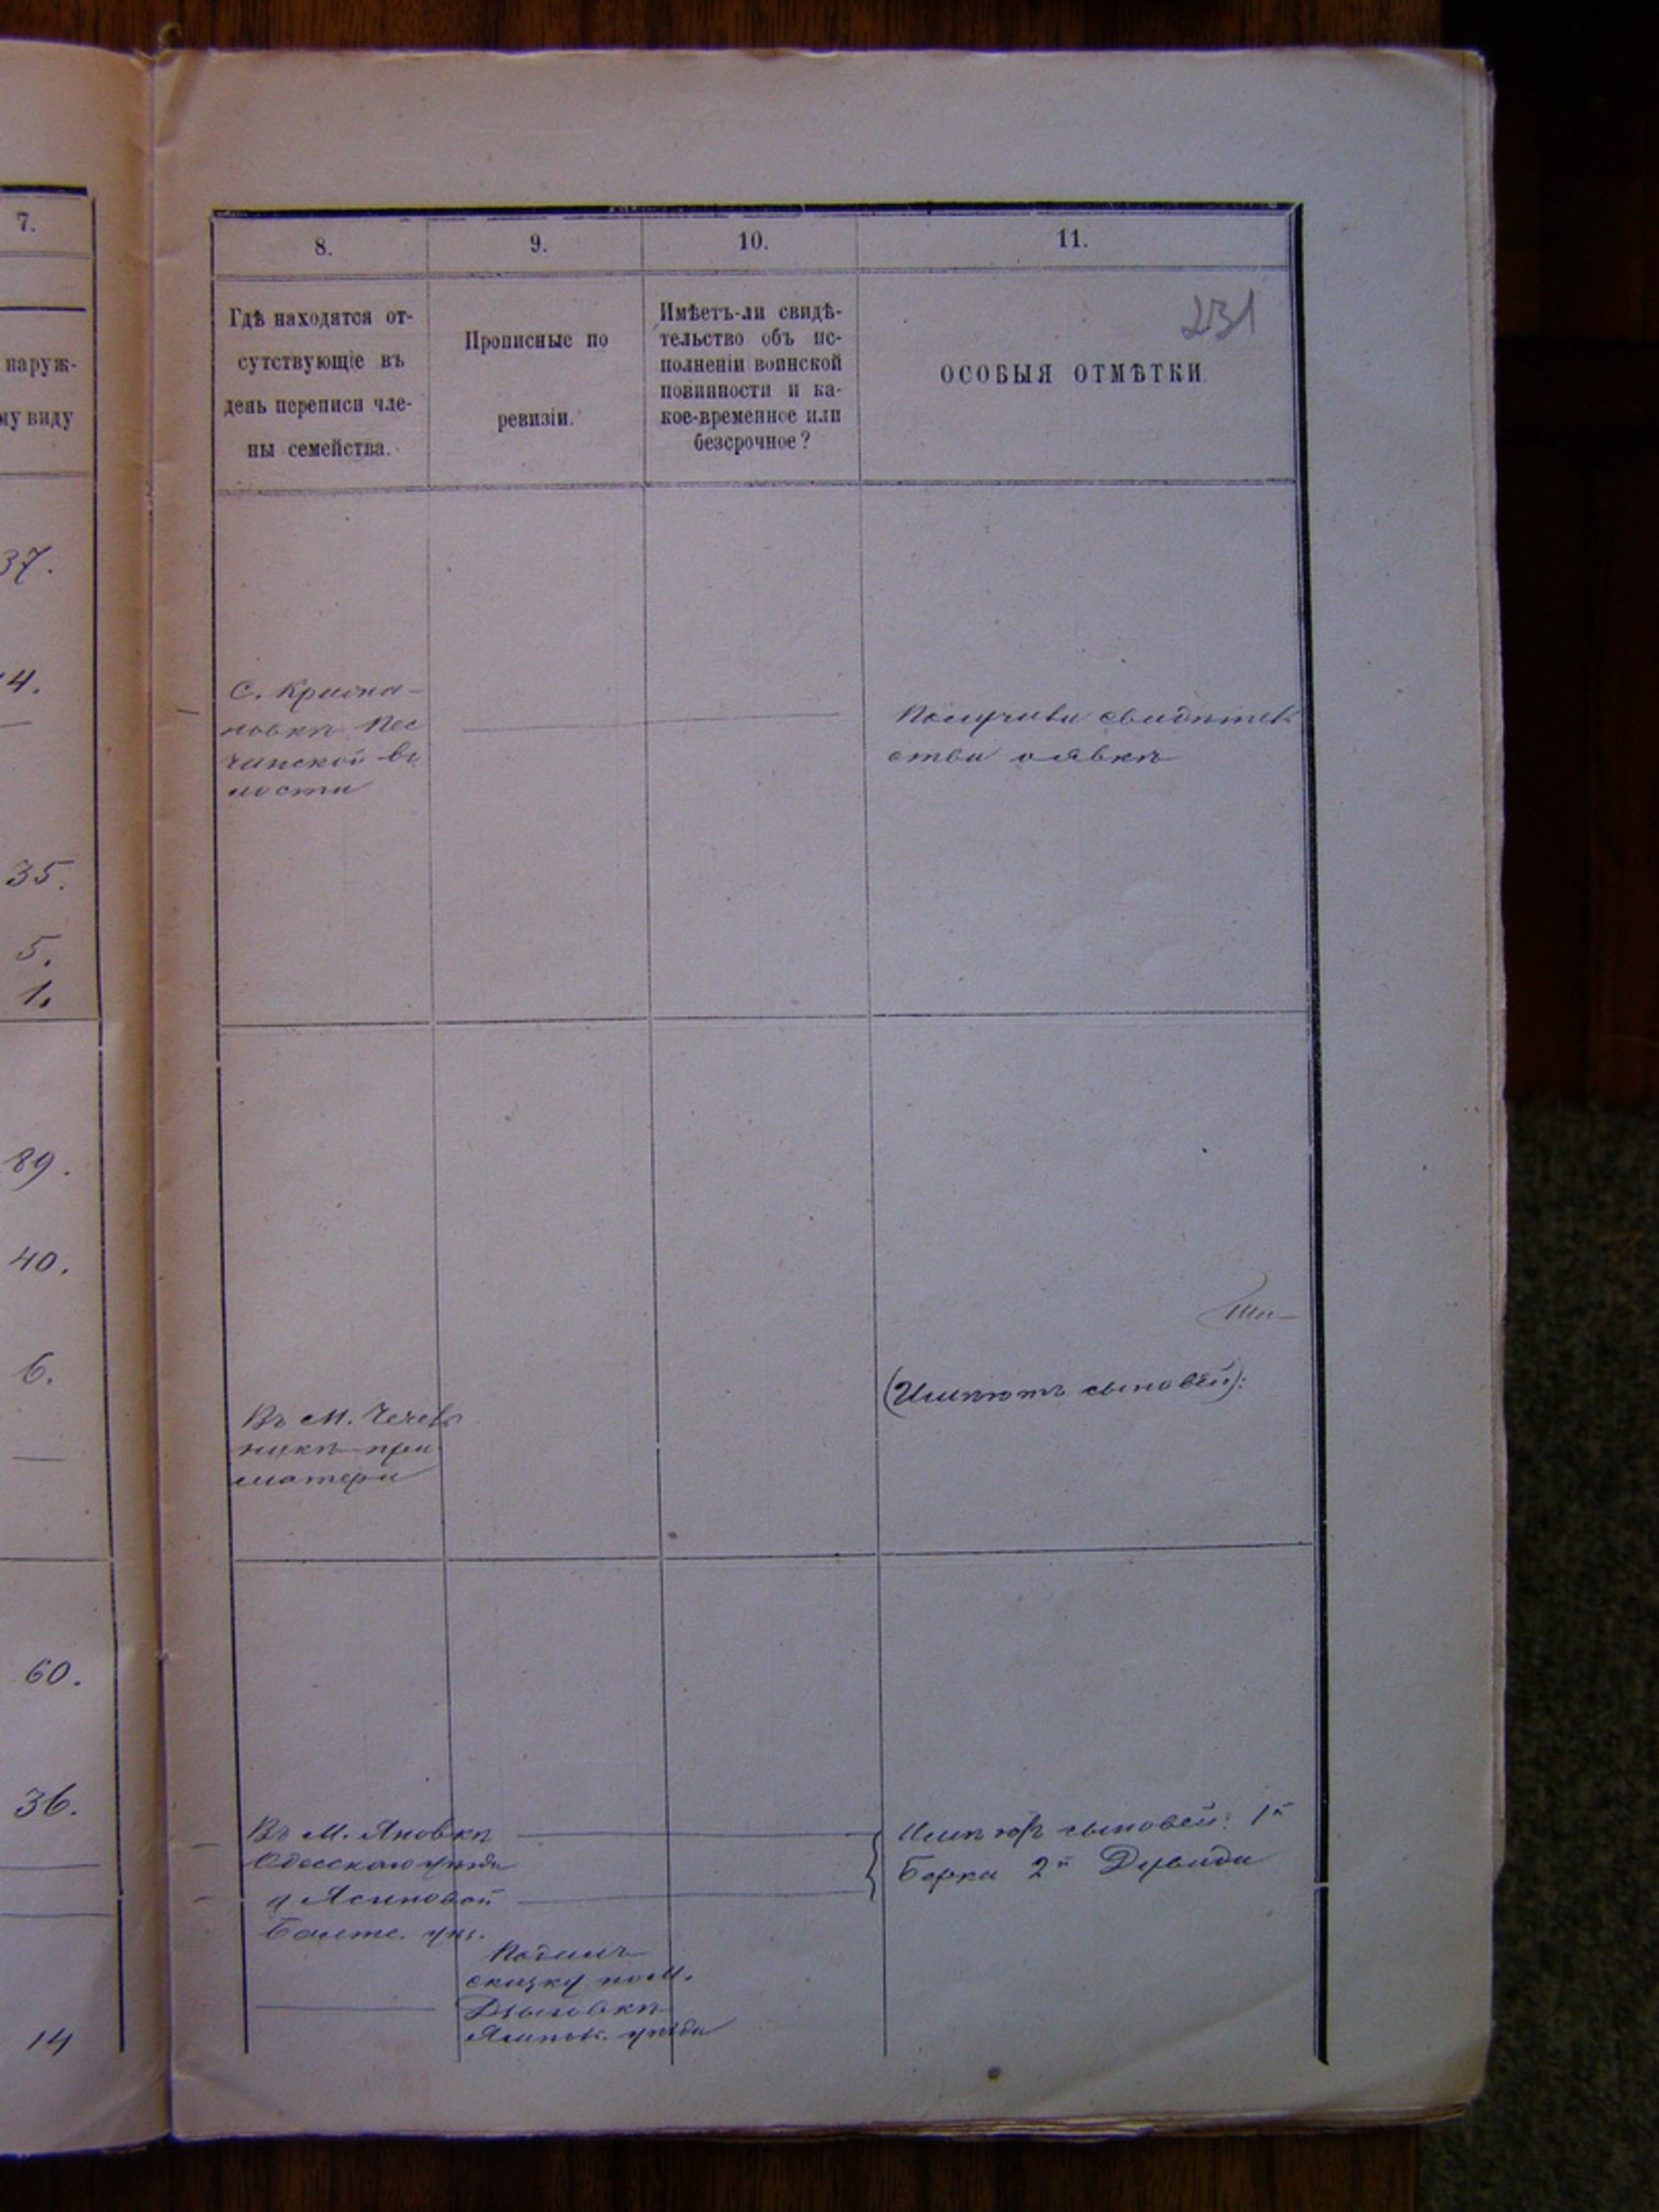 7.
наруж-
му виду
37.
4.
35.
5.
1.
89.
40.
6.
60.
36.
14
8.
9.
10.
11.
231
Гдѣ находятся от-
сутствующіе въ
день переписи чле-
ны семейства.
Прописные по
ревизіи.
Имѣетъ-ли свидѣ-
тельство объ ис-
полненіи воинской
повинности и ка-
кое-временное или
безсрочное?
ОСОБЫЯ ОТМѢТКИ.
С.
новкѣ Пес
чанской во
лости
свидѣтель
ства о явкѣ
Въ М. Чечель
никѣ при
матери
(Имѣютъ сыновей):
Въ М. Яновкѣ
Одесскаго уѣзда
Ясиновой
Балтс. уѣз.
Подалъ
сказку по М.
Дзыговкѣ
Ямполь. уѣзда
Имѣютъ сыновей: 1й
Борка 2й Дувида